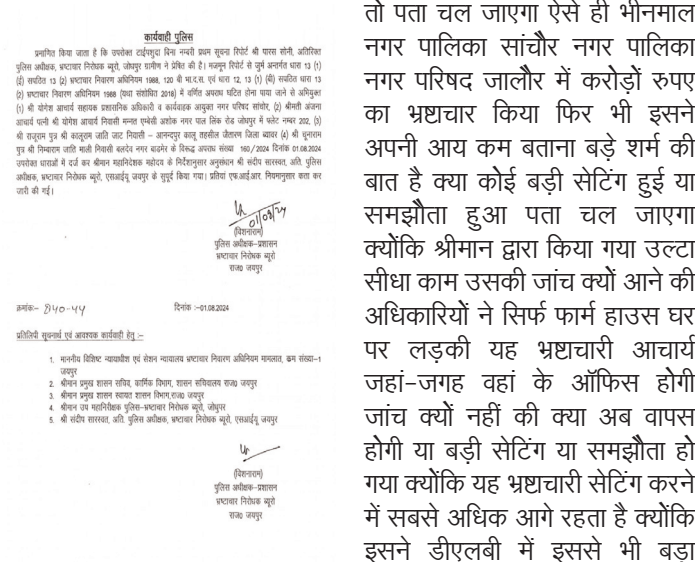 कार्यवाही पुलिस
प्रमाणित किया जाता है कि उपरोक्त टाईपशुदा बिना नम्बरी प्रथम सूचना रिपोर्ट श्री पारस सोनी, अतिरिक्त
पुलिस अधीक्षक, भ्रष्टाचार निरोधक ब्यूरो, जोधपुर ग्रामीण ने प्रेषित की है। मजमून रिपोर्ट से जुर्म अन्तर्गत धारा 13 (1)
(ई) सपठित 13 (2) भ्रष्टाचार निवारण अधिनियम 1988, 120 बी भा.द.स. एवं धारा 12, 13 (1) (बी) सपठित धारा 13
(2) भ्रष्टाचार निवारण अधिनियम 1988 (यथा संशोधित 2018) में वर्णित अपराध घटित होना पाया जाने से अभियुक्त
(1) श्री योगेश आचार्य सहायक प्रशासनिक अधिकारी व कार्यवाहक आयुक्त नगर परिषद सांचोर, (2) श्रीमती अंजना
आचार्य पत्नी श्री योगेश आचार्य निवासी मन्नत एम्बेसी अशोक नगर पाल लिंक रोड जोधपुर में फ्लेट नम्बर 202, (3)
श्री राजूराम पुत्र श्री कालूराम जाति जाट निवासी – आनन्दपुर कालू तहसील जैतारण जिला ब्यावर (4) श्री चूनाराम
पुत्र श्री निम्बाराम जाति माली निवासी बलदेव नगर बाडमेर के विरूद्ध अपराध संख्या 160/2024 दिनांक 01.08.2024
उपरोक्त धाराओं में दर्ज कर श्रीमान महानिदेशक महोदय के निर्देशानुसार अनुसंधान श्री संदीप सारस्वत, अति. पुलिस
अधीक्षक, भ्रष्टाचार निरोधक ब्यूरो, एसआईयू जयपुर के सुपुर्द किया गया। प्रतियां एफ.आई.आर. नियमानुसार कता कर
जारी की गई।
01/08/24
(विशनाराम)
पुलिस अधीक्षक–प्रशासन
भ्रष्टाचार निरोधक ब्यूरो
राज० जयपुर
क्रमांकः– 840-44 दिनांक :–01.08.2024
प्रतिलिपी सूचनार्थ एवं आवश्यक कार्यवाही हेतु :–
1. माननीय विशिष्ट न्यायाधीश एवं सेशन न्यायालय भ्रष्टाचार निवारण अधिनियम मामलात, क्रम संख्या–1
जयपुर
2. श्रीमान प्रमुख शासन सचिव, कार्मिक विभाग, शासन सचिवालय राज० जयपुर
3. श्रीमान प्रमुख शासन स्वायत शासन विभाग,राज० जयपुर
4. श्रीमान उप महानिरीक्षक पुलिस–भ्रष्टाचार निरोधक ब्यूरो, जोधपुर
5. श्री संदीप सारस्वत, अति. पुलिस अधीक्षक, भ्रष्टाचार निरोधक ब्यूरो, एसआईयू जयपुर
(विशनाराम)
पुलिस अधीक्षक–प्रशासन
भ्रष्टाचार निरोधक ब्यूरो
राज० जयपुर
तो पता चल जाएगा ऐसे ही भीनमाल
नगर पालिका सांचौर नगर पालिका
नगर परिषद जालौर में करोड़ों रुपए
का भ्रष्टाचार किया फिर भी इसने
अपनी आय कम बताना बड़े शर्म की
बात है क्या कोई बड़ी सेटिंग हुई या
समझौता हुआ पता चल जाएगा
क्योंकि श्रीमान द्वारा किया गया उल्टा
सीधा काम उसकी जांच क्यों आने की
अधिकारियों ने सिर्फ फार्म हाउस घर
पर लड़की यह भ्रष्टाचारी आचार्य
जहां-जगह वहां के ऑफिस होगी
जांच क्यों नहीं की क्या अब वापस
होगी या बड़ी सेटिंग या समझौता हो
गया क्योंकि यह भ्रष्टाचारी सेटिंग करने
में सबसे अधिक आगे रहता है क्योंकि
इसने डीएलबी में इससे भी बड़ा